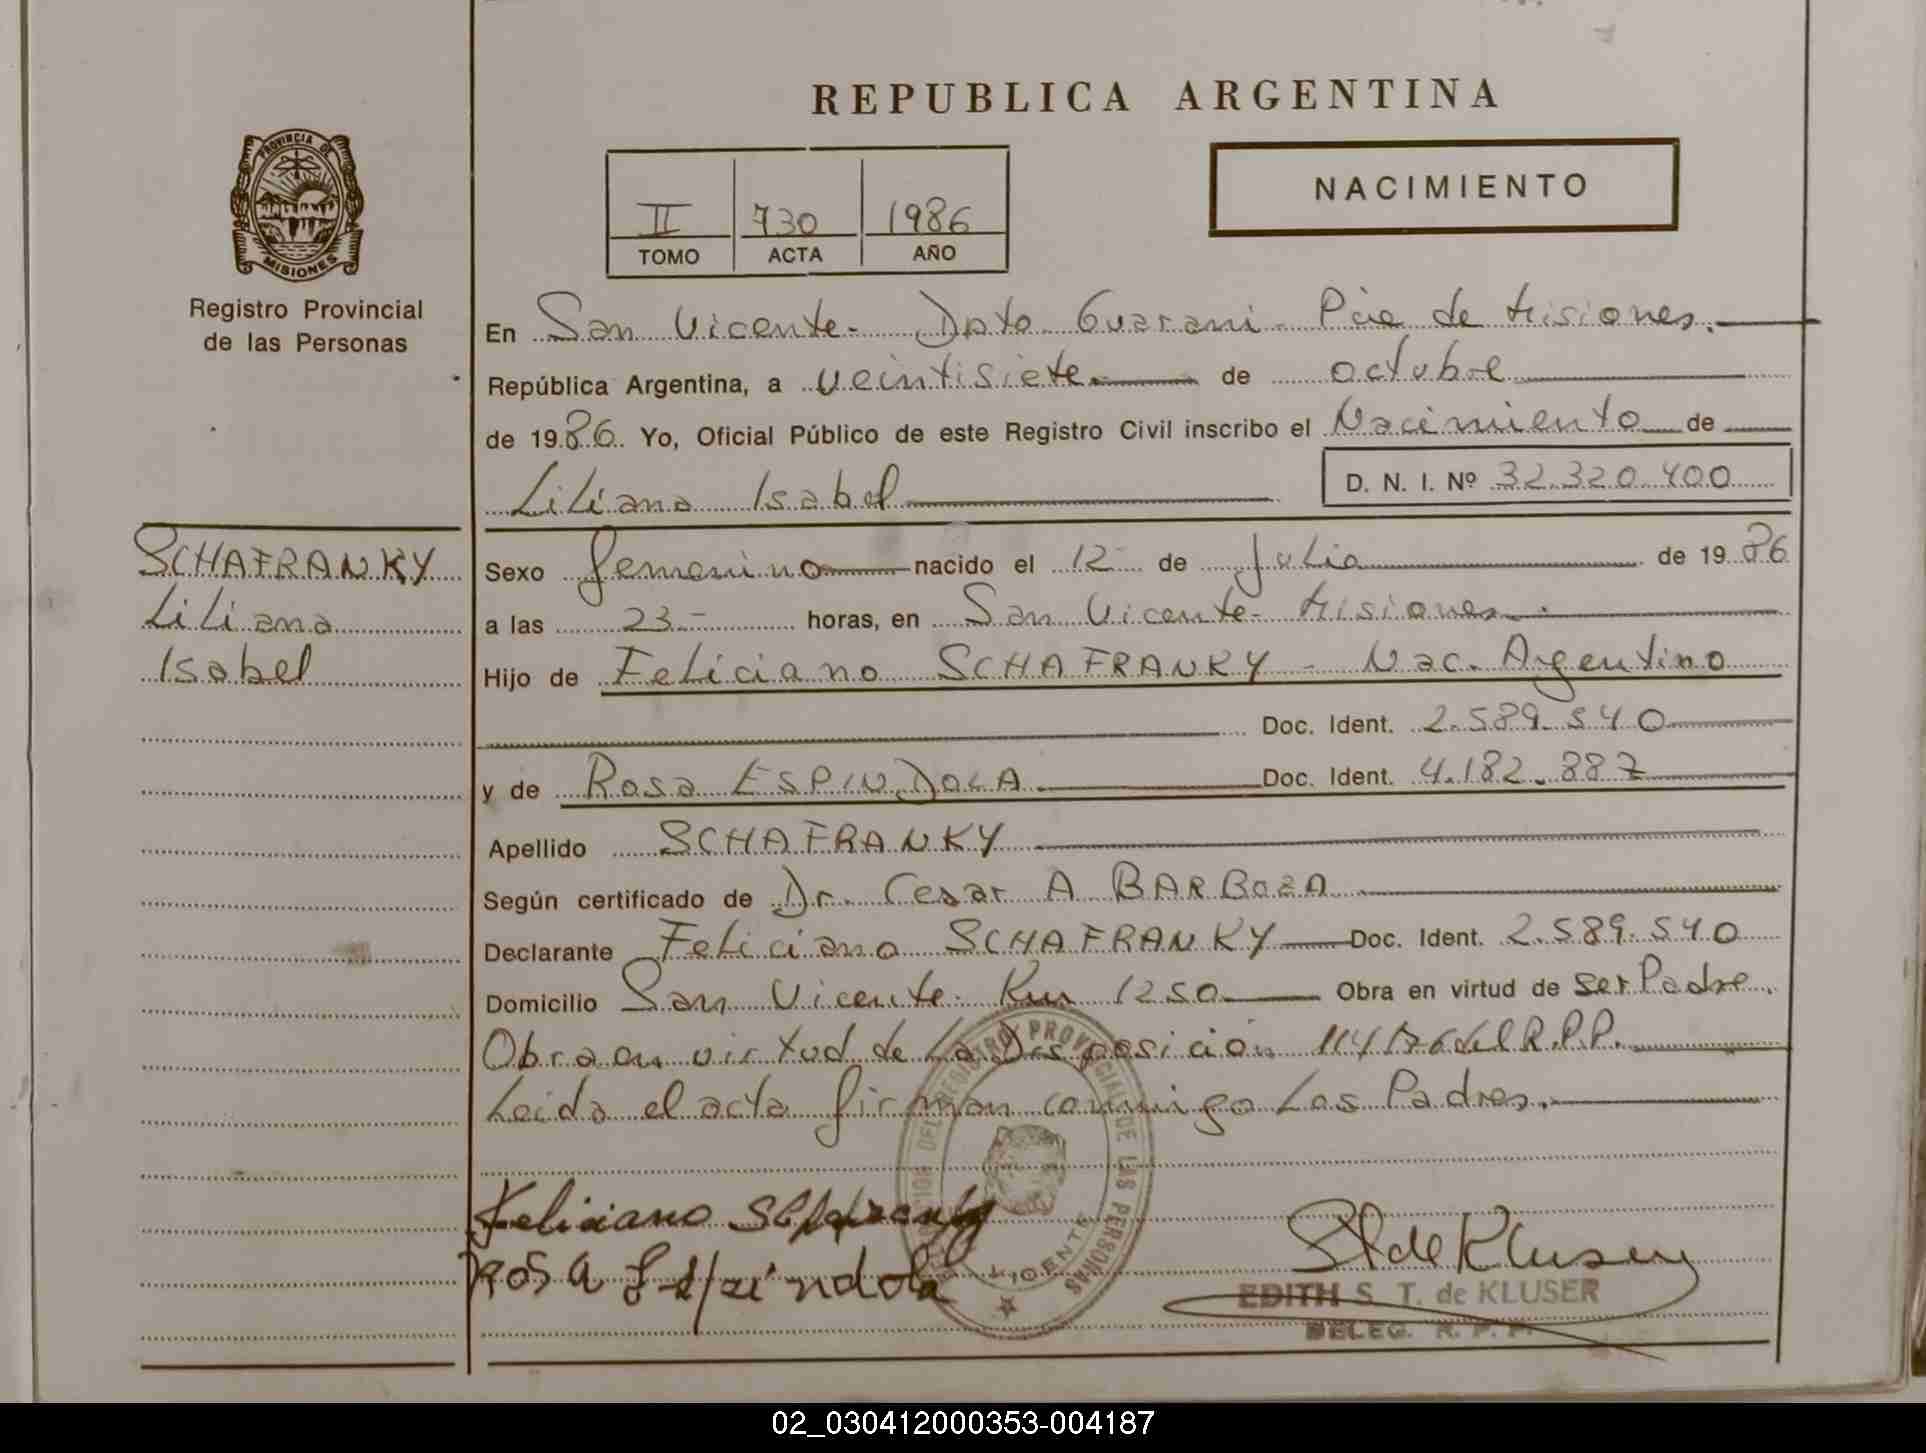 REPUBLICA ARGENTINA
PROVINCIA DE
MISIONES
Registro Provincial
de las Personas
NACIMIENTO
II 730 1986
TOMO ACTA AÑO
En San Vicente- Dpto Guarani- Pcia de Misiones.
República Argentina, a veintisiete de octubre
de 1986. Yo, Oficial Público de este Registro Civil inscribo el Nacimiento de
Liliana Isabel D. N. I. Nº 32.320.400
SCHAFRANKY
Liliana
Isabel
Sexo femenino nacido el 12 de Julio de 1986
a las 23- horas, en San Vicente- Misiones.
Hijo de Feliciano SCHAFRANKY - Nac. Argentino
Doc. Ident. 2.589.540
y de Rosa ESPINDOLA Doc. Ident. 4.182.887
Apellido SCHAFRANKY
Según certificado de Dr. Cesar A BARBOZA
Declarante Feliciano SCHAFRANKY Doc. Ident. 2.589.540
Domicilio San Vicente- Km 1250 Obra en virtud de ser Padre.
Obra en virtud de La Disposición 114/76 del R.P.P.
Leida el acta firman conmigo Los Padres.
REGISTRO PROVINCIAL DE LAS PERSONAS
VICENTE
Feliciano Schafranky
ROSA Espindola
St de Kluser
EDITH S. T. de KLUSER
DELEG. R. P. P.
02_030412000353-004187